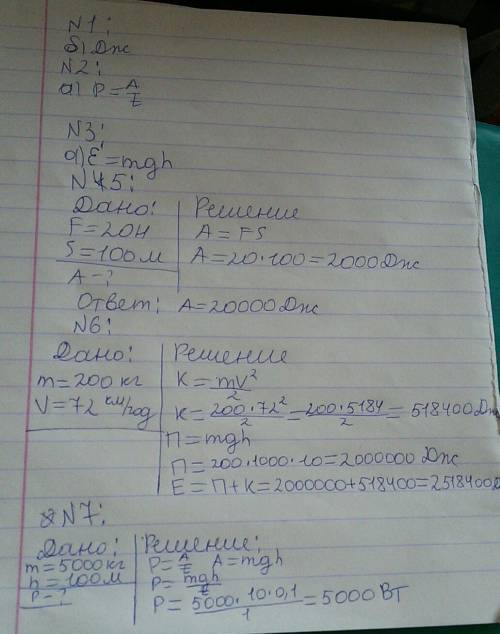 N1:
б) Дж
N2:
а) P = A/t
N3:
а) E = mgh
N 5:
Дано: Решение
F = 20Н A = FS
S = 100 м A = 20 · 100 = 2000 Дж
A - ?
Ответ: A = 20000 Дж
N6:
Дано: Решение
m = 200 кг K = mV²/2
V = 72 км/год K = 200 · 72²/2 = 200 · 5184/2 = 518400 Дж
П = mgh
П = 200 · 1000 · 10 = 2000000 Дж
E = П + K = 2000000 + 518400 = 2518400
N7:
Дано: Решение:
m = 5000 кг P = A/t A = mgh
h = 100 м P = mgh/t
P - ? P = 5000 · 10 · 0,1/1 = 5000 Вт